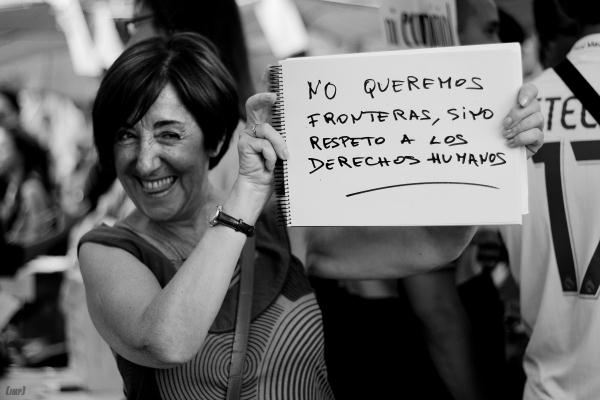 NO QUEREMOS
FRONTERAS, SINO
RESPETO A LOS
DERECHOS HUMANOS
17